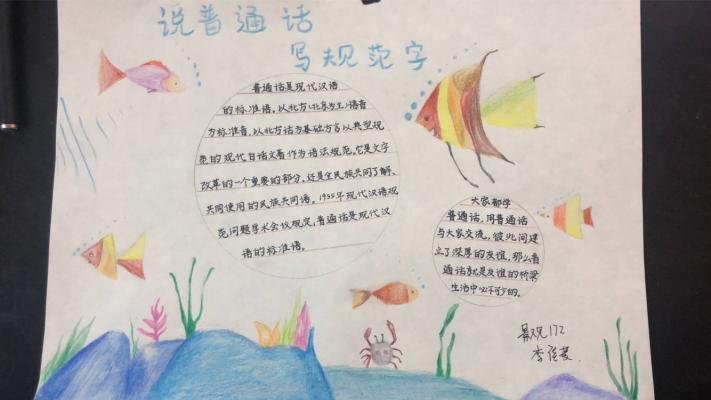 说普通话
写规范字
普通话是现代汉语
的标准语。以北方(北京发生)语音
为标准音，以北方话为基础方言以典型规
范的现代白话文著作为语法规范。它是文字
改革的一个重要的部分，还是全民族共同了解、
共同使用的民族共同语。1955年现代汉语规
范问题学术会议规定，普通话是现代汉
语的标准语。
大家都学
普通话，用普通话
与大家交流，彼此间建
立了深厚的友谊，那么普
通话就是友谊的桥梁
生活中必不可少的。
景观172